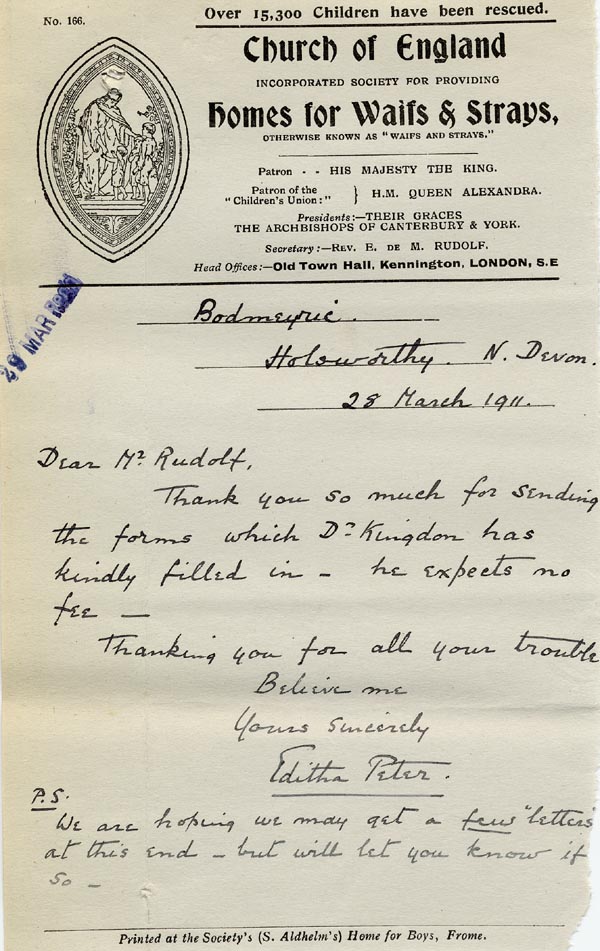 No. 166.
Over 15,300 Children have been rescued.
Church of England
INCORPORATED SOCIETY FOR PROVIDING
Homes for Waifs & Strays,
OTHERWISE KNOWN AS "WAIFS AND STRAYS."
Patron - - HIS MAJESTY THE KING.
Patron of the "Children's Union:" } H.M. QUEEN ALEXANDRA.
Presidents:—THEIR GRACES
THE ARCHBISHOPS OF CANTERBURY & YORK.
Secretary:—REV. E. DE M. RUDOLF.
Head Offices:—Old Town Hall, Kennington, LONDON, S.E
29 MAR
Holsworthy. N. Devon.
28 March 1911.
Dear Mr Rudolf,
Thank you so much for sending
the forms which Dr Kingdon has
kindly filled in – he expects no
fee —
Thanking you for all your trouble
Believe me
Yours sincerely
Editha Peter.
P.S.
We are hoping we may get a few "letters
at this end – but will let you know if
so –
Printed at the Society's (S. Aldhelm's) Home for Boys, Frome.